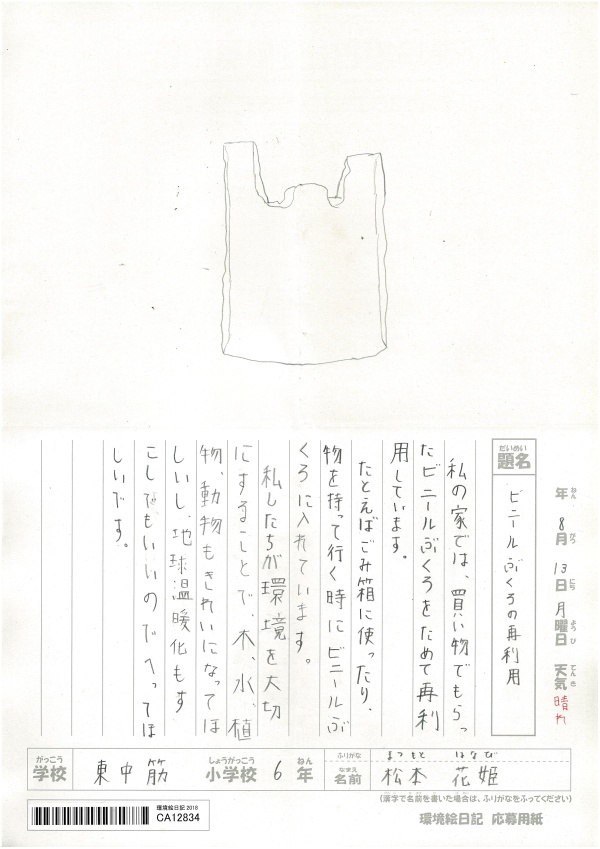 年 8月 13日 月曜日 天気 晴れ
ねん がつ にち ようび てんき
だいめい
題名
ビニールぶくろの再利用
私の家では、買い物でもらっ
たビニールぶくろをためて再利
用しています。
たとえばごみ箱に使ったり、
物を持って行く時にビニールぶ
くろに入れています。
私したちが環境を大切
にすることで、木、水、植
物、動物もきれいになってほ
しいし、地球温暖化もす
こしでもいいのでへってほ
しいです。
がっこう しょうがっこう ねん ふりがな まつもと はなび
学校 東中筋 小学校 6年 なまえ 名前 松本 花姫
(漢字で名前を書いた場合は、ふりがなをふってください)
環境絵日記 2018
CA12834
環境絵日記 応募用紙